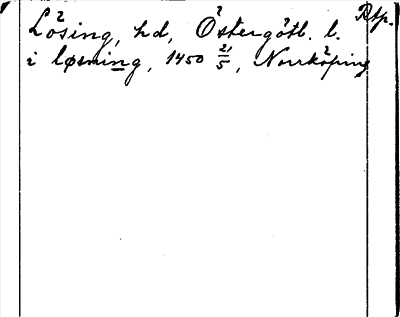 Rtp.
Lösing, hd, Östergötl. l.
i løsning, 1450 21/5, Norrköping